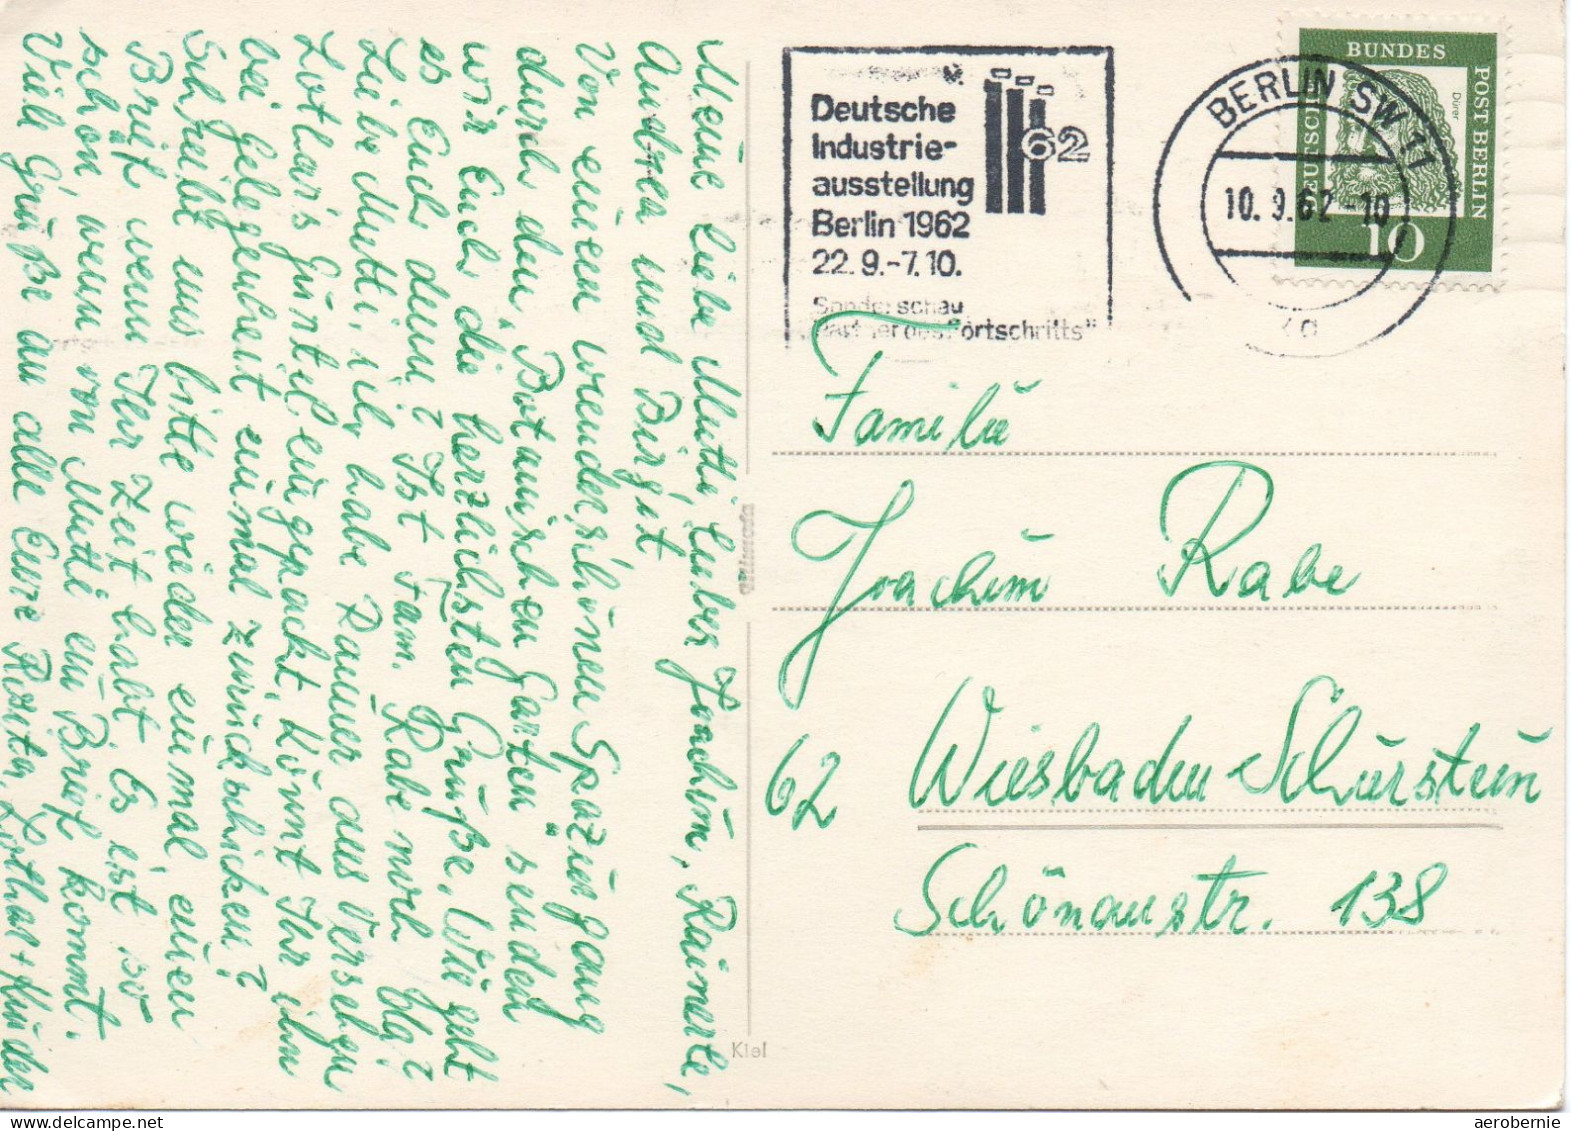 Meine liebe Mutti, lieber Joachim, Rainerle,
Andrea und Birgit
Von einem wunderschönen Spaziergang
durch den „Botanischen Garten" senden
wir Euch die herzlichsten Grüße. Wie geht
es Euch denn? Ist Fam. Rabe noch da?
Liebe Mutti, ich habe Rainer aus Versehen
Lothar's Gürtel eingepackt, könnt Ihr ihn
bei Gelegenheit einmal zurückschicken?
Schreibt uns bitte wieder einmal einen
Brief wenn Ihr Zeit habt. Es ist so
schön, wenn von Mutti ein Brief kommt.
Viele Grüße an alle Eure Rosita, Lothar + Kinder
Deutsche
Industrie-
ausstellung
Berlin 1962
22.9.-7.10.
Sonderschau
Partner des Fortschritts"
62
BERLIN SW 11
10.9.62-10
DEUTSCHE
BUNDES
POST BERLIN
Dürer
10
Familie
Joachim Rabe
62 Wiesbaden-Schierstein
Schönaustr. 138
Kiel
aerobernie